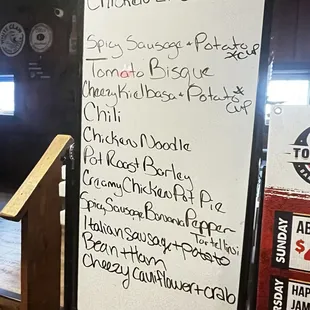 Chicken
Spicy Sausage + Potato
*cup
Tomato Bisque
Cheezy Kielbasa + Potato *
cup
Chili
Chicken Noodle
Pot Roast Barley
Creamy Chicken Pot Pie
Spicy Sausage Banana Pepper
Tortellini
Italian Sausage + Potato
Bean + Ham
Cheezy Cauliflower + Crab
TO
SUNDAY
AB
$
THURSDAY
HAP
JAM